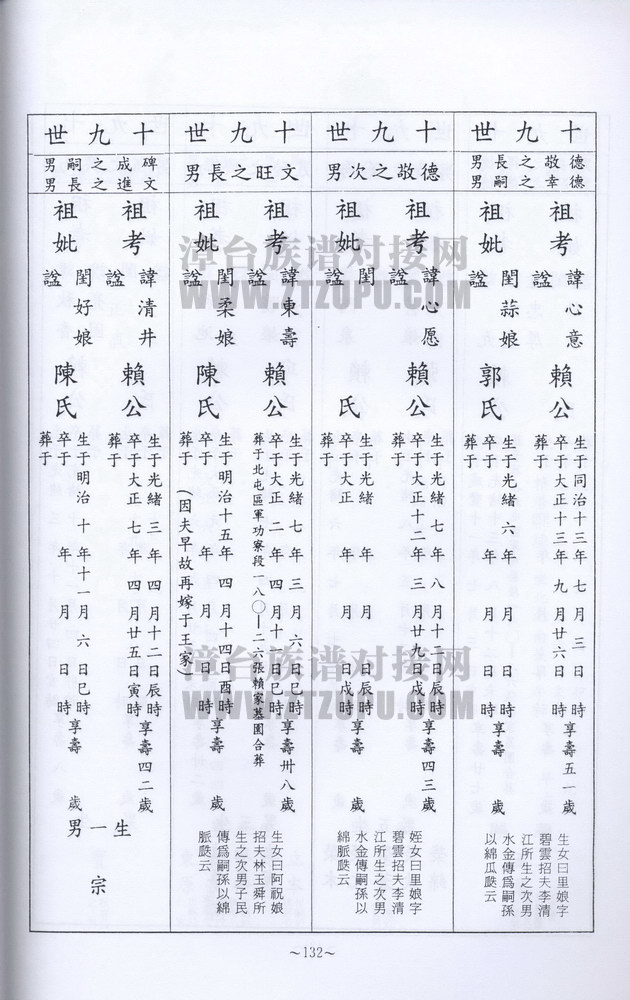 十九世
德敬之長男
德幸之嗣男
祖考 諱心意 賴公
諡
生于同治十三年 七月 三日 時
卒于大正十三年 九月廿六日 時享壽五一歲
葬于
祖妣 閨蒜娘 郭氏
諡
生于光緒 六年 月 日 時
卒于 年 月 日 時享壽 歲
葬于
生女曰里娘字
碧雲招夫李清
江所生之次男
水金傳爲嗣孫
以綿瓜瓞云
十九世
德敬之次男
祖考 諱心愿 賴公
諡
生于光緒 七年 八月十二日辰時
卒于大正十二年 三月廿九日戌時享壽四三歲
葬于
祖妣 閨 氏
諡
生于光緒 年 月 日辰時
卒于大正 年 月 日戌時享壽 歲
葬于
姪女曰里娘字
碧雲招夫李清
江所生之次男
水金傳爲嗣孫以
綿脈瓞云
十九世
文旺之長男
祖考 諱東壽 賴公
諡
生于光緒 七年 三月 六日巳時
卒于大正 二年 四月十一日巳時享壽卅八歲
葬于北屯區軍功寮段一八〇—二六張賴家墓園合葬
祖妣 閨柔娘 陳氏
諡
生于明治十五年 四月十四日酉時
卒于 年 月 日 時享壽 歲
葬于 (因夫早故再嫁于王家)
生女曰阿祝娘
招夫林玉舜所
生之次男子民
傳爲嗣孫以綿
脈瓞云
十九世
碑成之嗣男
文進之長男
祖考 諱清井 賴公
諡
生于光緒 三年 四月十二日辰時
卒于大正 七年 四月廿五日寅時享壽四二歲
葬于
祖妣 閨好娘 陳氏
諡
生于明治 十年十一月 六日巳時
卒于 年 月 日 時享壽 歲
葬于
生一男
宗
~132~
漳台族谱对接网
WWW.ZTZUPU.COM
漳台族谱对接网
WWW.ZTZUPU.COM